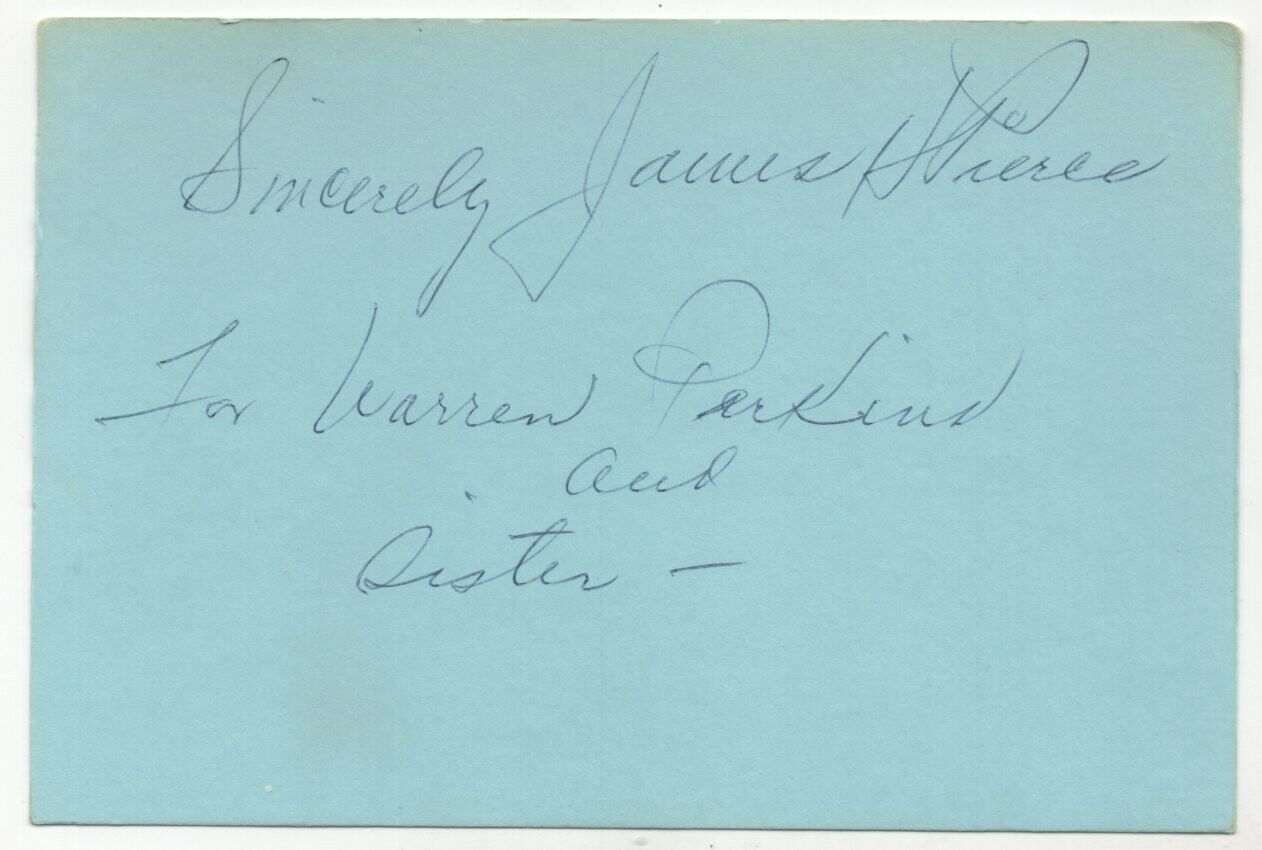 Sincerely James H Pierce
For Warren Parkins
and
Sister —